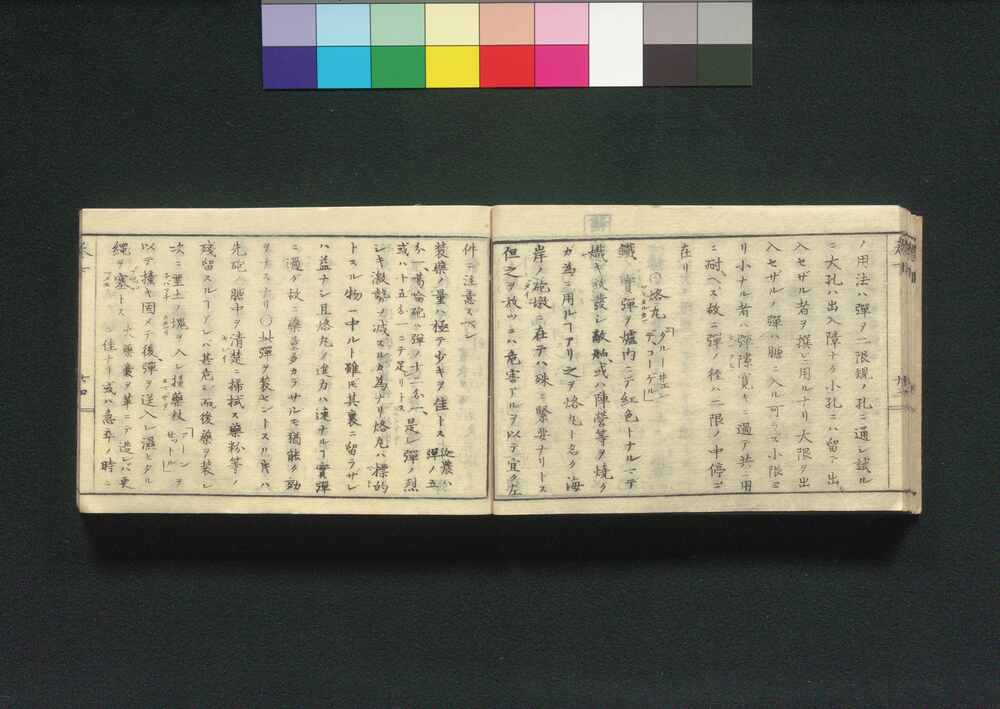 ノ用法ハ彈ヲ二限規ノ孔ニ通シ試ル
ニ大孔ハ出入障ナク小孔ニハ留テ出
入セザル者ヲ撰ビ用ルナリ大限ヲ出
入セザルノ彈ハ膅ニ入ル可ラズ小限ニ
リ小ナル者ハ彈隙寛キニ過テ共ニ用
ニ耐ヘズ故ニ彈ノ径ハ二限ノ中停ニ
在リ
○烙丸
鐵實彈ヲ爐内ニテ紅色トナルマデ
熾キ放發シ敵舳或ハ陣營等ヲ燒ク
ガ為ニ用ルヿアリ之ヲ烙丸ト名ク海
岸ノ砲墩ニ在テハ殊ニ緊要ナリトス
但之ヲ放ツニハ危害アルヲ以テ宜ク左
件ニ注意スベシ
装藥ノ量ハ極テ少キヲ佳トス從農ハ彈ノ五
分一葛倫砲ハ彈ノ十二分一是レ彈ノ烈
或ハ十五分一ニテ足レリトス
シキ激勢ヲ減スルカ為ナリ烙丸ハ標的
トスル物ニ中ルト雖𪜈其裏ニ留ラザレ
ハ益ナシ且烙丸ノ進力ハ速ナルヿ實彈
ニ過グ故ニ藥量多カラサルモ猶能ク効
此彈ヲ装セントスル𪜈ハ
先砲膅中ヲ清楚ニ掃拭ス藥粉等ノ
殘留スルヿアレバ甚危シ而後藥ヲ装シ
次ニ埋土ノ塊ヲ入レ捶藥杖
以テ撞キ固メテ後彈ヲ送入レ濕ヒタル
繩ヲ塞トス
火藥嚢ヲ革ニテ造レバ更
ニ佳ナリ或ハ急卒ノ時ニ